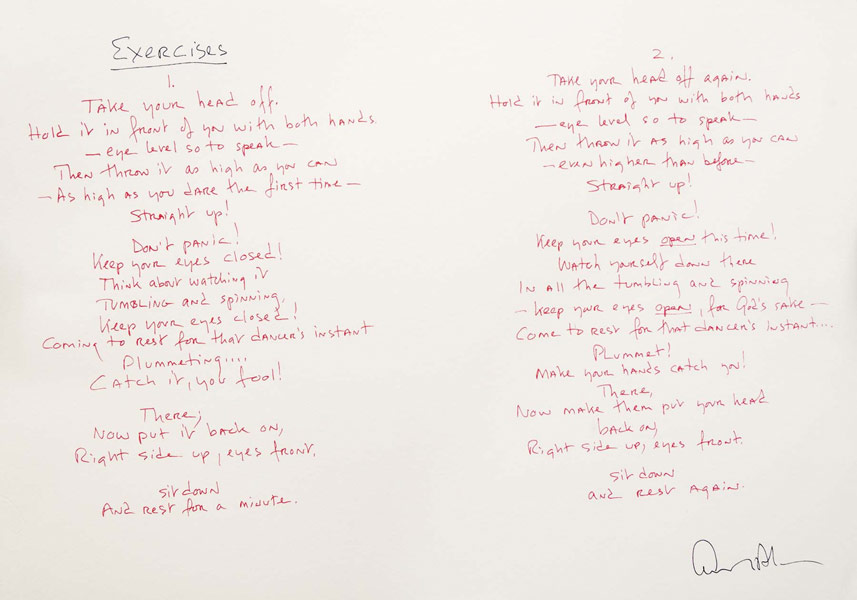 Exercises
1.
Take your head off.
Hold it in front of you with both hands.
— eye level so to speak —
Then throw it as high as you can
— As high as you dare the first time —
Straight up!
Don't panic!
Keep your eyes closed!
Think about watching it
Tumbling and spinning,
Keep your eyes closed!
Coming to rest for that dancer's instant
Plummeting....
Catch it, you fool!
There;
Now put it back on,
Right side up, eyes front.
sit down
And rest for a minute.
2.
Take your head off again.
Hold it in front of you with both hands
— eye level so to speak —
Then throw it as high as you can
— even higher than before —
Straight up!
Don't panic!
Keep your eyes open this time!
Watch yourself down there
In all the tumbling and spinning
— keep your eyes open, for God's sake —
Come to rest for that dancer's instant....
Plummet!
Make your hands catch you!
There,
Now make them put your head
back on,
Right side up, eyes front.
sit down
and rest again.